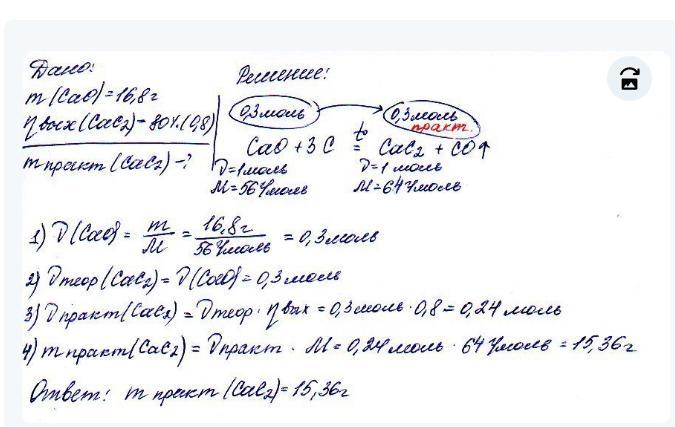 Дано:
m(CaO)=16,8г
ηвых(CaC₂)-80%(0,8)
mпракт(CaC₂)-?
Решение:
0,3моль → 0,3моль
практ.
CaO + 3C t° = CaC₂ + CO↑
ν=1моль ν=1 моль
M=56г/моль M=64г/моль
1) ν(CaO) = m/M = 16,8г/56г/моль = 0,3моль
2) νтеор(CaC₂) = ν(CaO) = 0,3моль
3) νпракт(CaC₂) = νтеор · ηвых = 0,3моль · 0,8 = 0,24 моль
4) mпракт(CaC₂) = νпракт · M = 0,24моль · 64г/моль = 15,36г
Ответ: mпракт(CaC₂)=15,36г